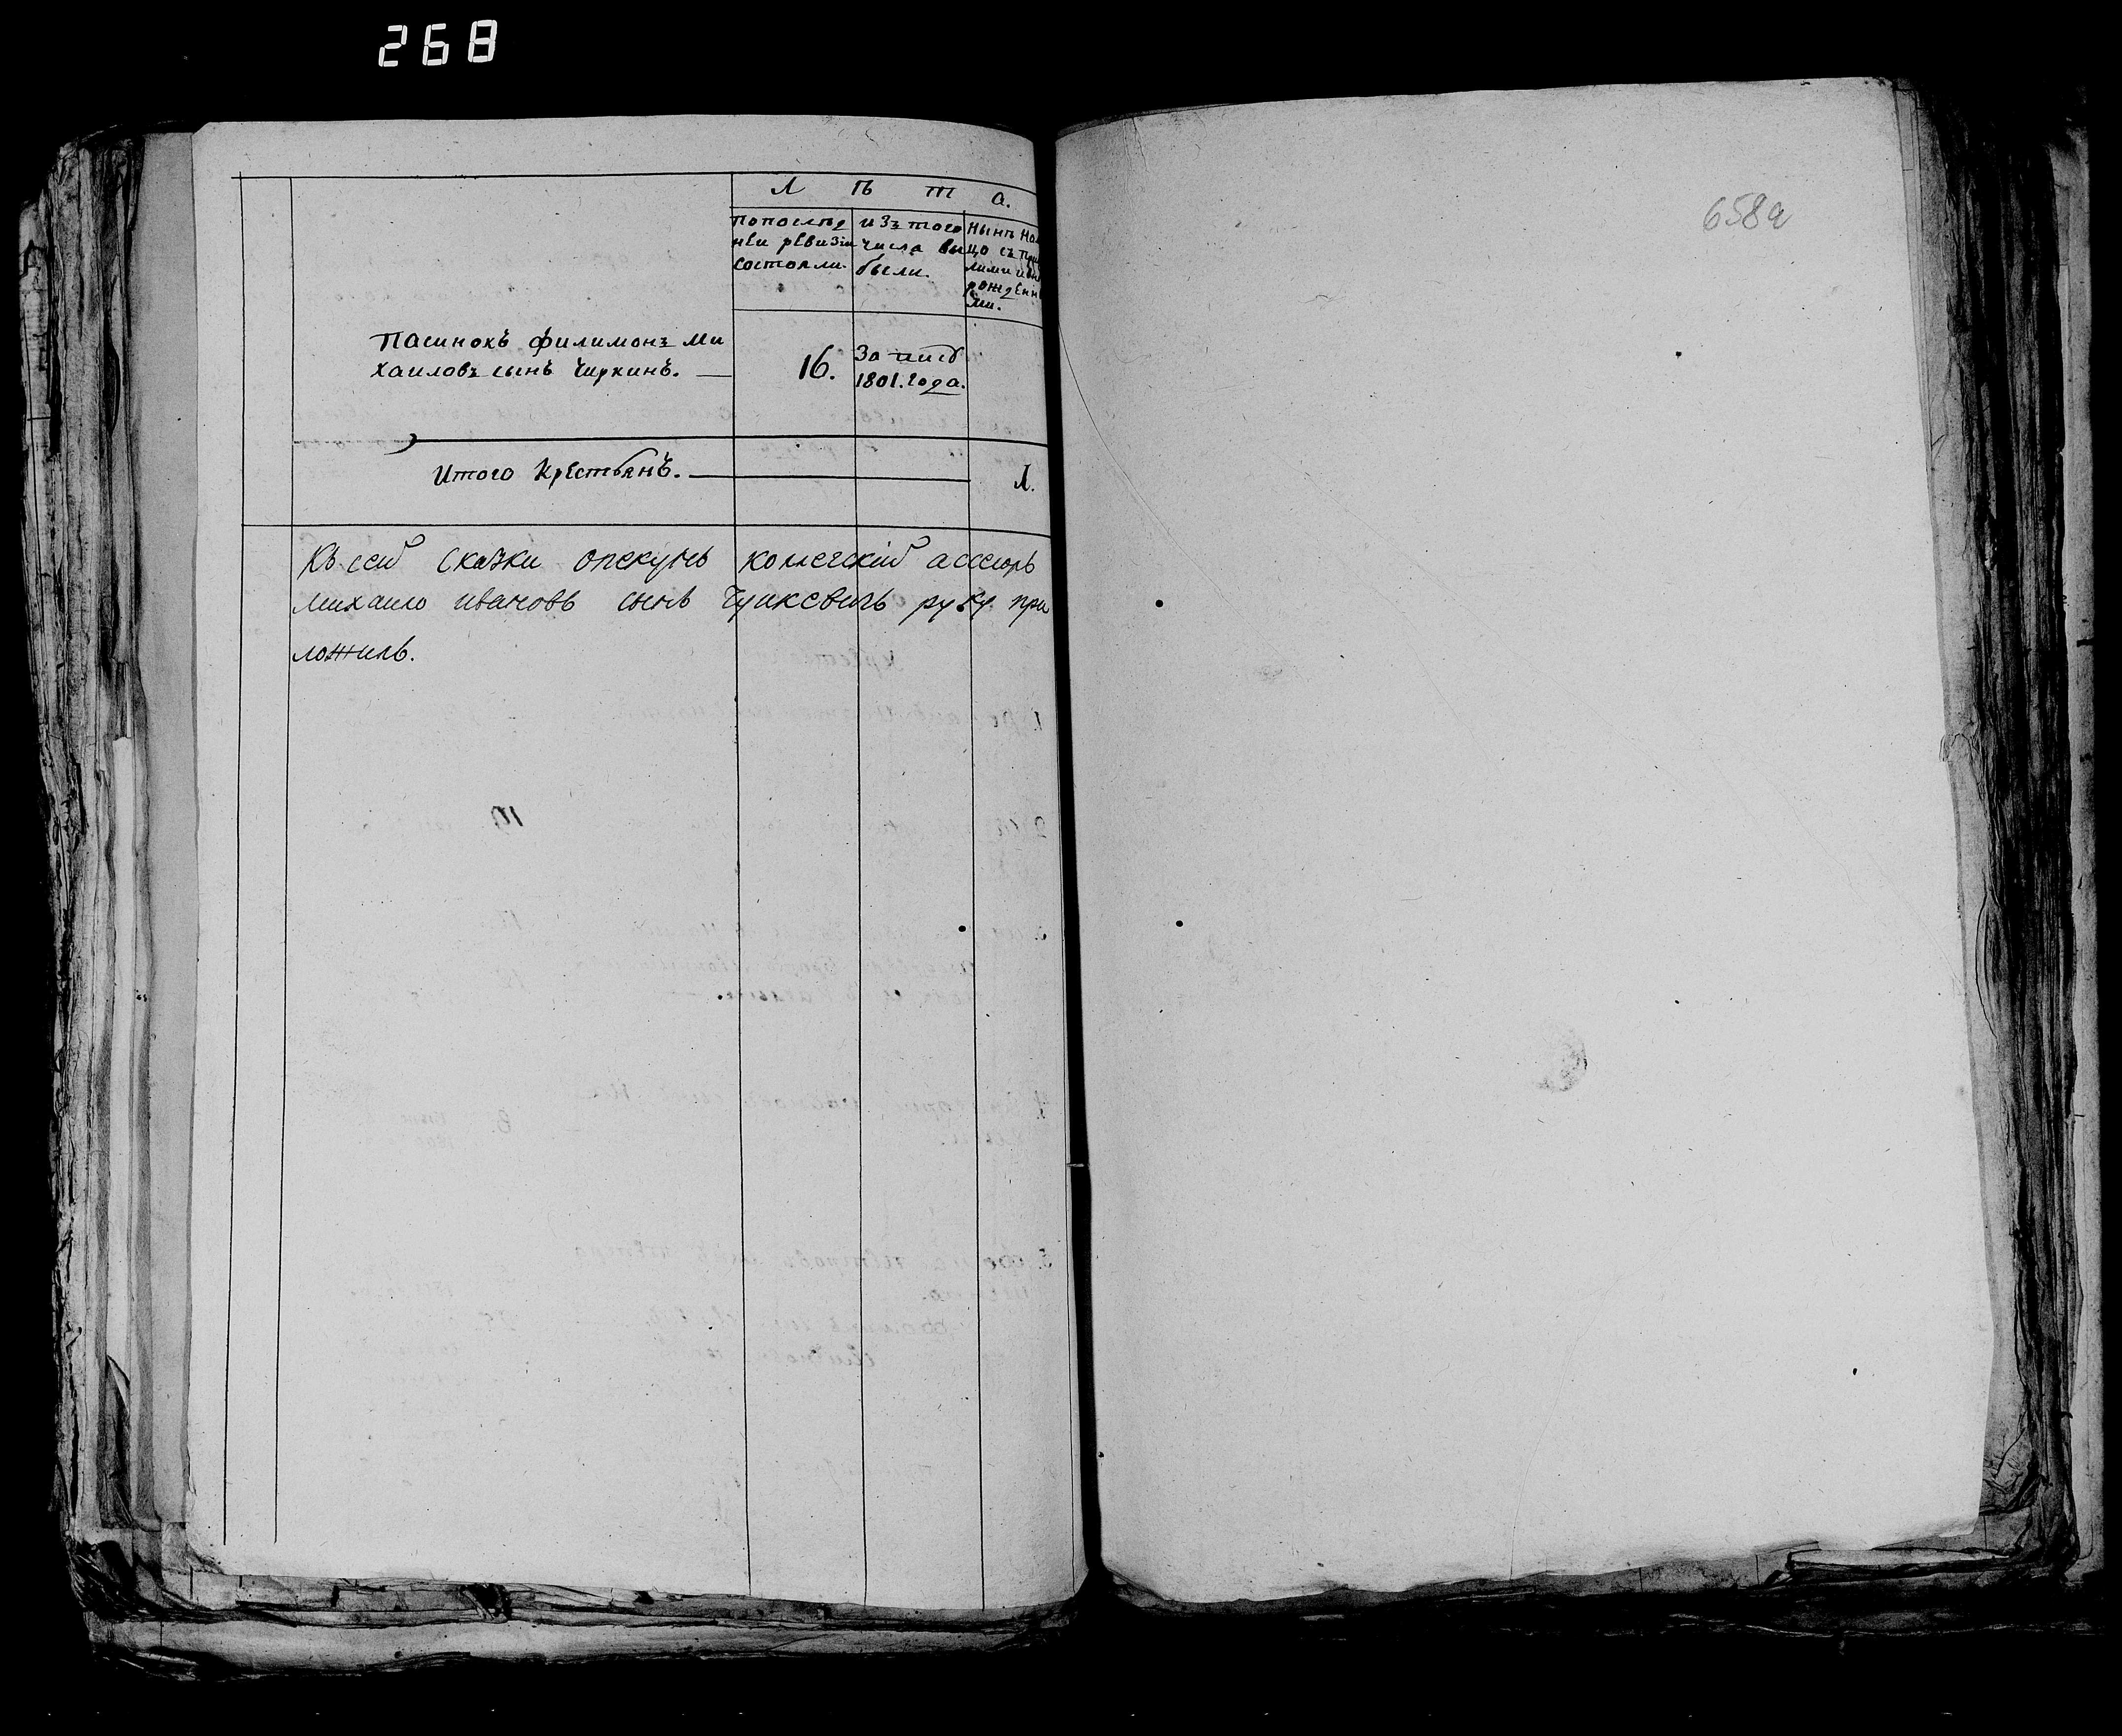 268
Л ѣ т а.
попослѣд
ней ревизіи
состояли.
изъ того
числа вы
были.
Нынѣ на
цо съ при
лыми и
рожденн
ми.
Пасинокъ филимонъ Ми
хаиловъ сынъ Чиркинъ.
16.
За
1801. года.
Итого Крестьянъ.
Къ сей сказки опекунъ колегскій ассесоръ
михаило ивановъ сынъ Чуйкевичь руку при
ложилъ.
658а